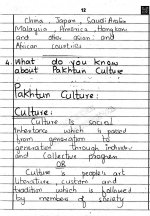 12
China, Japan, Saudi Arabia
Malaysia, America, Hongkong
and other asian and
African countries
4. What do you know
about Pakhtun Culture
Pakhtun Culture:
Culture:
Culture is social
inheritance which is passed
from generation to
generation through individual
and collective program
OR
Culture is people's art
literature, custom and
tradition which is followed
by members of society